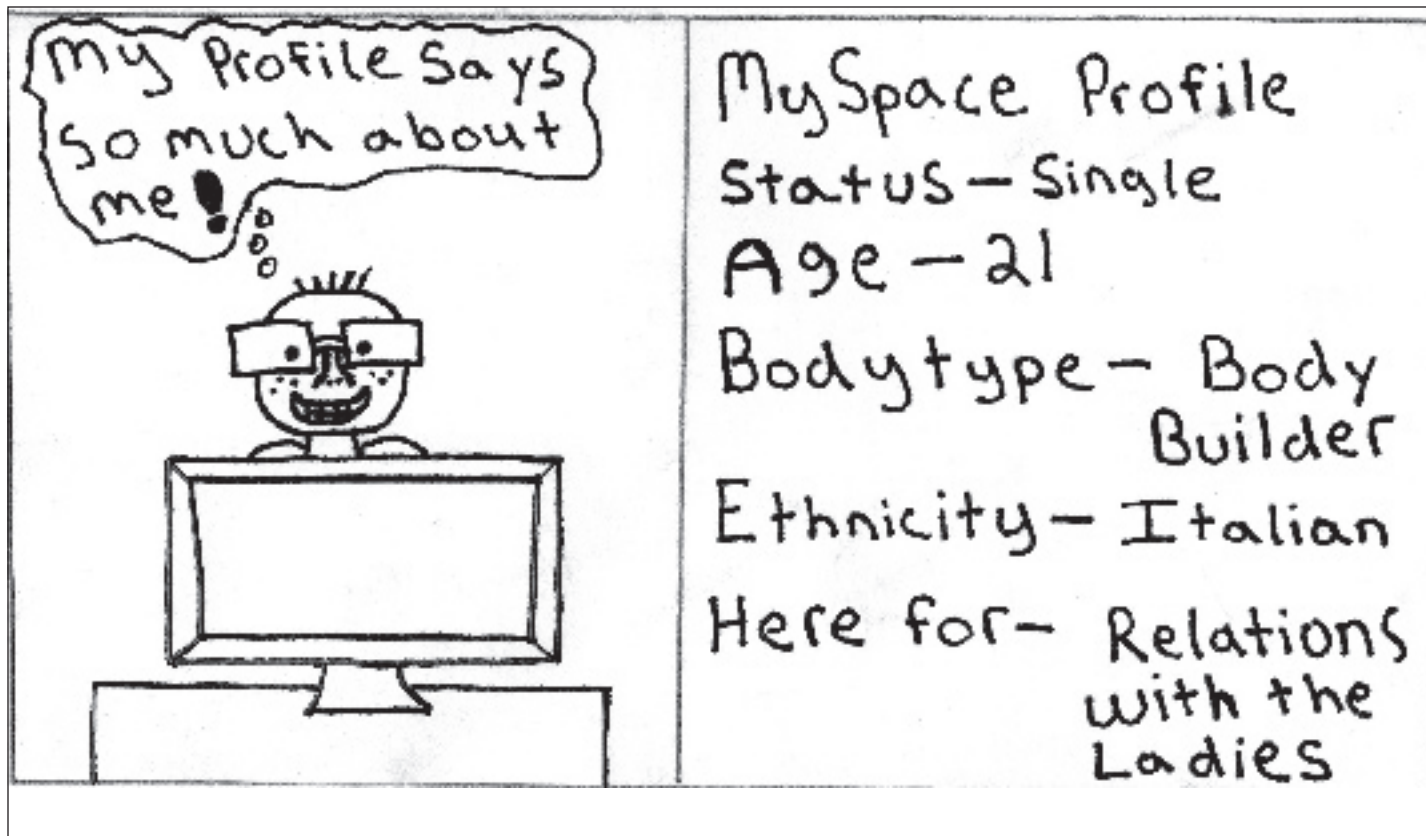 My Profile Says
so much about
me!
MySpace Profile
Status - Single
Age - 21
Bodytype - Body
Builder
Ethnicity - Italian
Here for - Relations
with the
Ladies